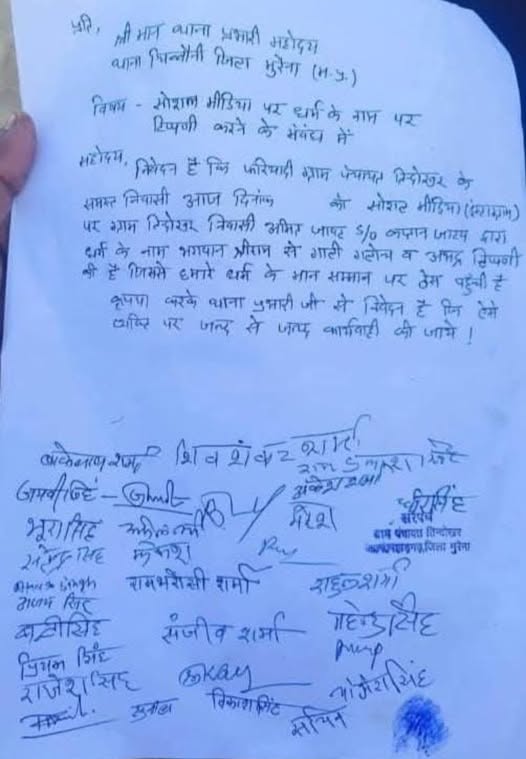 प्रति,
श्री मान थाना प्रभारी महोदय
थाना चिन्नौनी जिला मुरैना (म.प्र.)
विषय - सोशल मीडिया पर धर्म के नाम पर
टिप्पणी करने के संबंध में
महोदय,
निवेदन है कि फरियादी ग्राम पंचायत तिन्दोखर के
समस्त निवासी आज दिनांक को सोशल मीडिया (इंस्टाग्राम)
पर ग्राम तिन्दोखर निवासी अमित जाटव S/O कप्तान जाटव द्वारा
धर्म के नाम भगवान श्रीराम से गाली गलोच व अभद्र टिप्पणी
की है जिससे हमारे धर्म के मान सम्मान पर ठेस पहुंची है
कृपया करके थाना प्रभारी जी से निवेदन है कि ऐसे
व्यक्ति पर जल्द से जल्द कार्यवाही की जाये !
शिव शंकर शर्मा
अंकेश शर्मा
भूरा सिंह मुकेश सुरेश
सरपंच
ग्राम पंचायत तिन्दोखर
जिला मुरैना
रामभरोसी शर्मा राहुल शर्मा
संजीव शर्मा महेन्द्र सिंह
प्रियम सिंह
राजेश सिंह योगेश सिंह
विकाश सिंह
सचिन